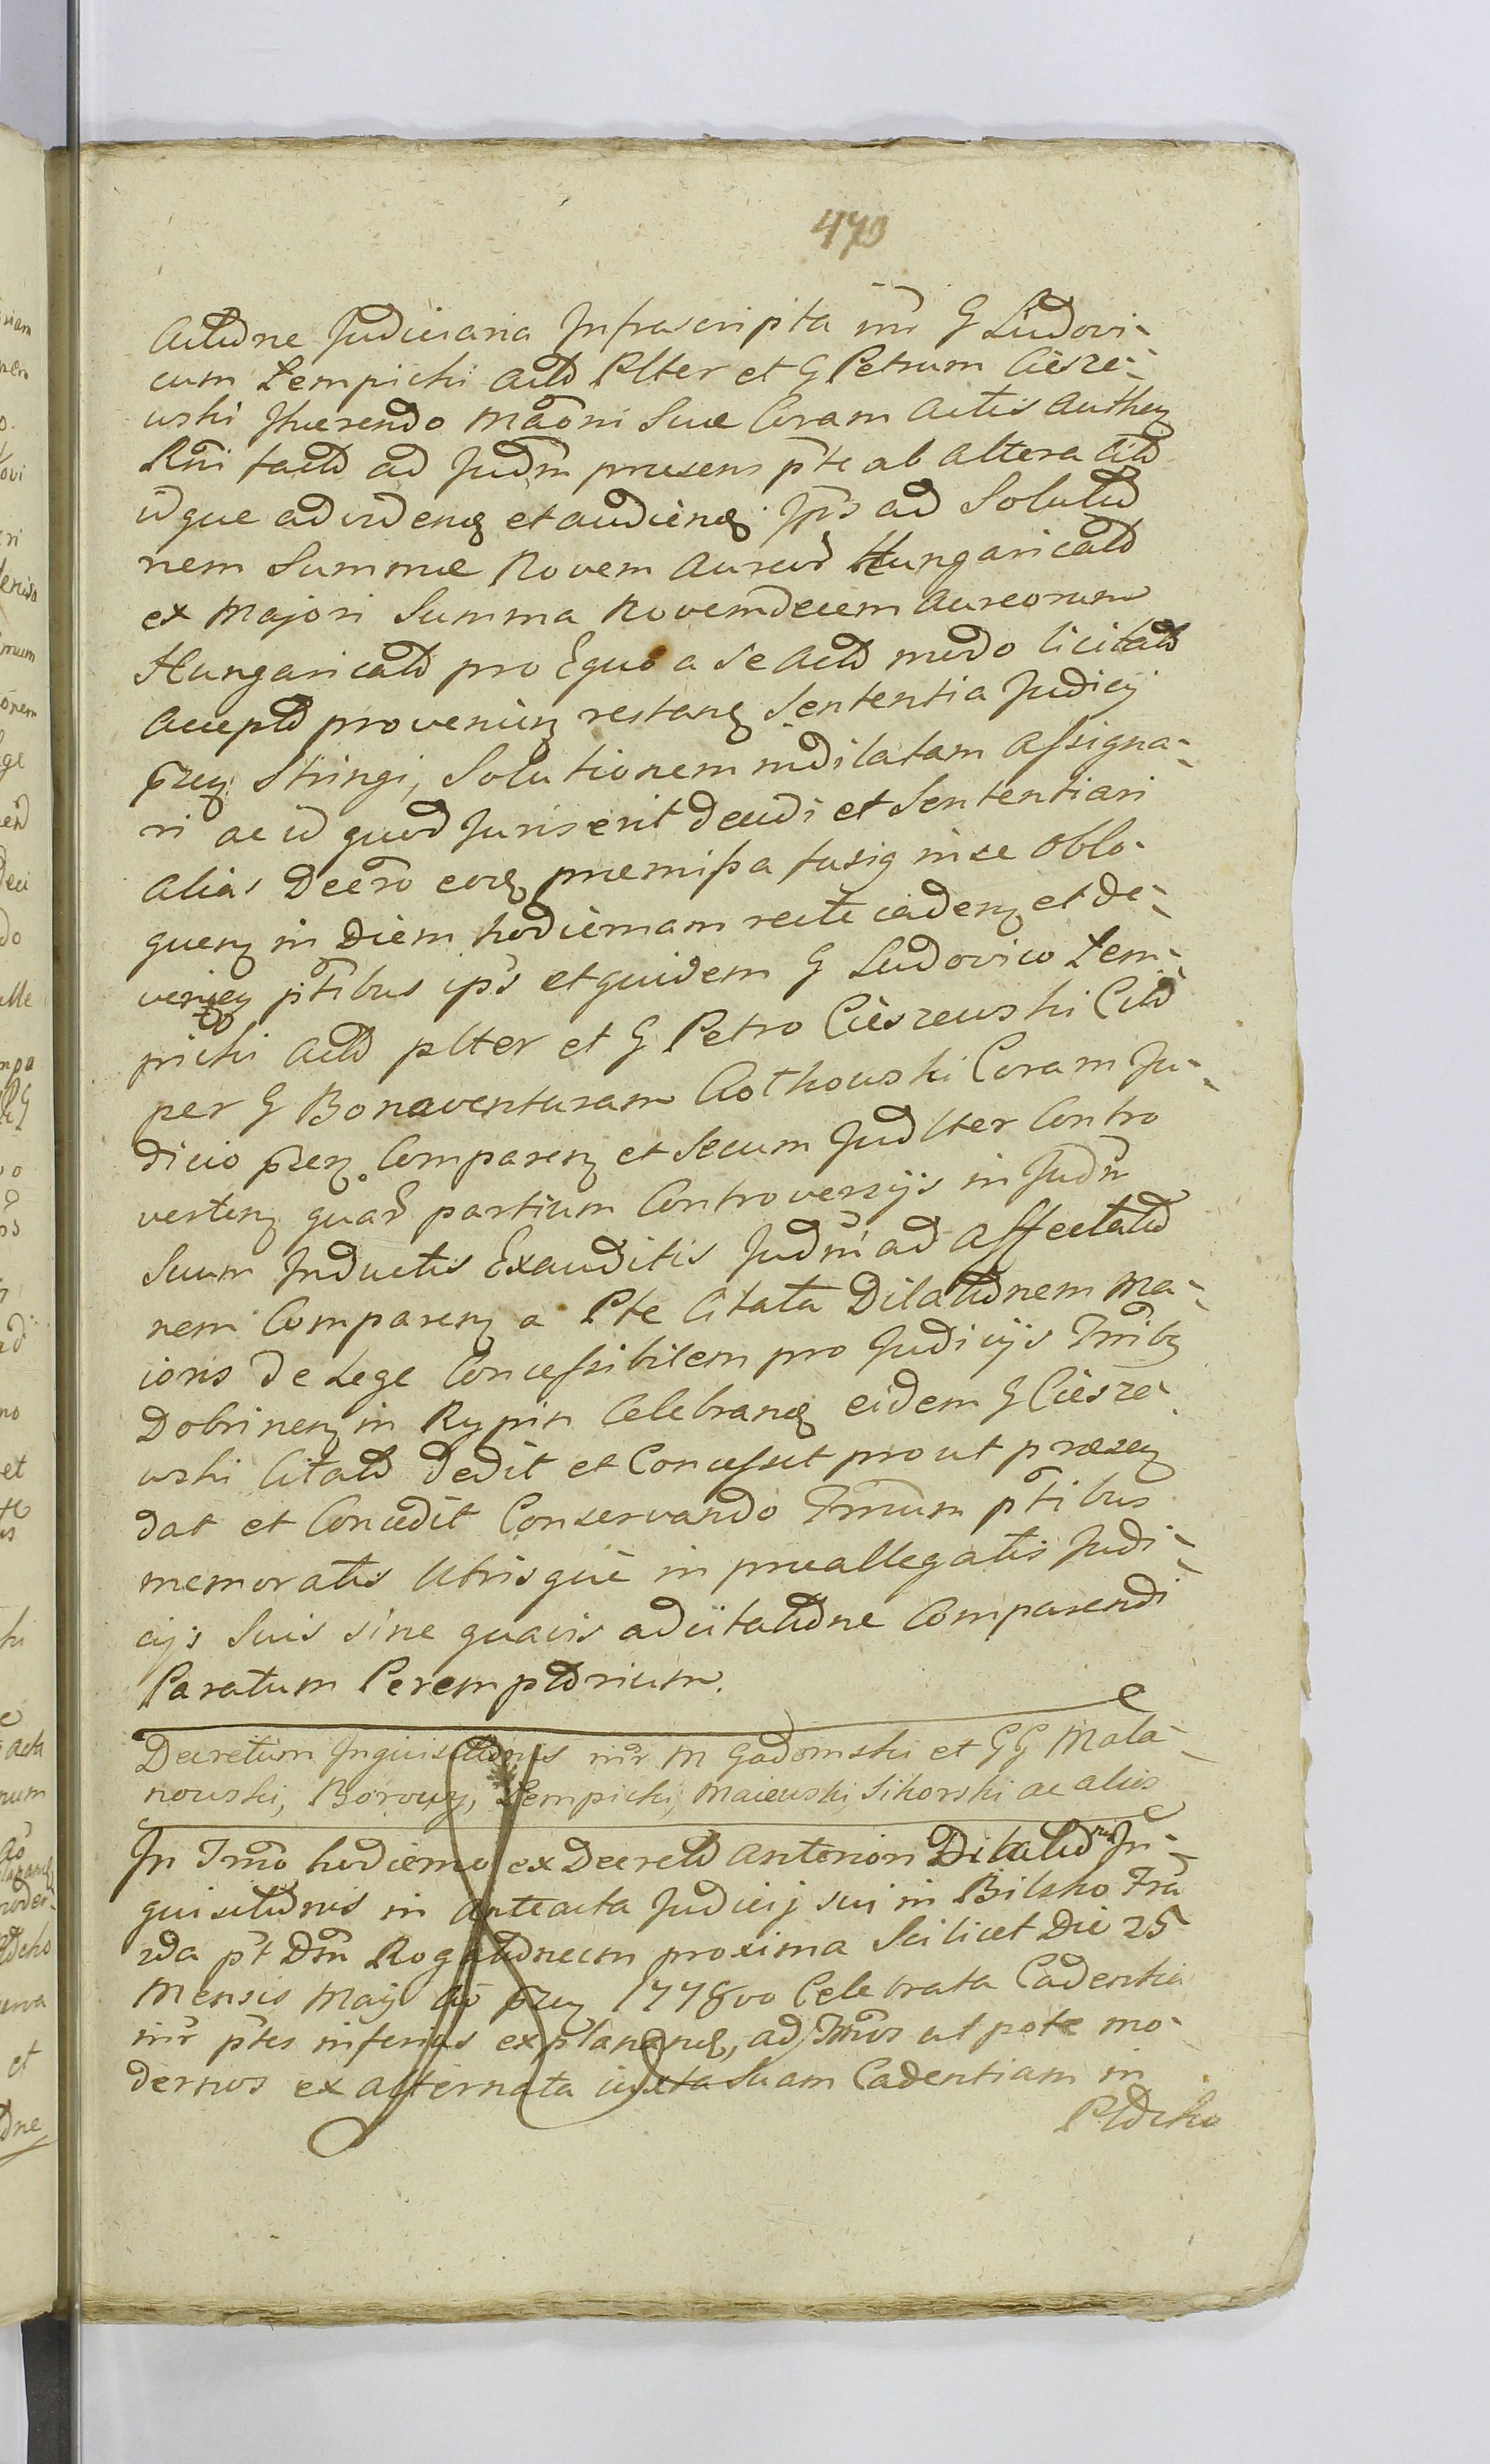 473
Actione Judiciaria Infrascripta inr G Ludovi-
cum Łempicki Acto Plter et G Petrum Ciesze-
wski Jhærendo Maoni Suæ Coram Actis Authen
Rni facto ad Judm præsens pte ab altera Cito
idque ad videnq et audienq Jps ad Solutio
nem Summæ Novem Aureor Hungaricalo
ex Majori Summa Novemdecem Aureorum
Hungaricalo pro Equo a Se Acto modo licitato
accepto provenien restanq Sententia Judicij
przn Stringi, Solutionem indilatam Assigna-
ri ac id quod Juris erit decidi et Sententiari
alias Decro eorq præmissa fusiq in se Oblo-
quen in Diem hodiernam recte caden et de-
venien ptibus ips et quidem G Ludovico Łem-
picki Acto plter et G Petro Cieszewski Cito
per G Bonaventuram Rothowski Coram Ju-
dicio przn Comparen et Secum Judlter Contro
verten quar partium Controversijs in Judm
Suum Inductis Exauditis Judm ad Affectatio
nem Comparen a Pte Citata Dilationem Ma-
ioris de Lege Concessibilem pro Judicijs Trribq
Dobrinen in Rypin Celebranq eidem G Ciesze-
wski Citato dedit et Concessit prout præsen
dat et Concedit Conservando Trrum ptibus
memoratis Utrisque in præallegatis Judi-
cijs Suis sine quavis adcitatione Comparendi
Paratum Peremptorium.
Decretum Inquisitionis inr M Gadomski et GG Mala-
nowski, Borowy, Łempicki, Maiewski, Sikorski ac alios
In Trno hodierno ex Decreto anteriori Dilatio nis In-
quisitionis in anteacta Judicij sui in Bilsko Fria
2da pt Dm Rogationem proxima Scilicet Die 25
Mensis Maij Ao przn 1778vo Celebrata Cadentia
inr ptes inferius explananq, ad Trnos utpote mo-
dernos ex alternata iuxta Suam Cadentiam in
Płocko